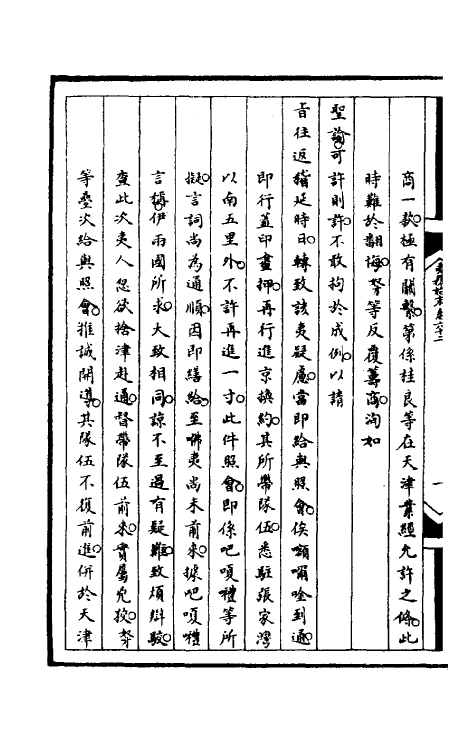 商一款極有關繫第係桂良等在天津業經允許之條此
時難於翻悔奴才等反覆籌商洵如
聖諭可許則許不敢拘於成例以請
旨往返稽延時日轉致該夷疑慮當即給與照會俟嘓𠸄唫到通
即行蓋印畫押再行進京換約其所帶隊伍悉駐張家灣
以南五里外不許再進一寸此件照會即係吧嗄禮等所
擬言詞尚為通順因即繕給至㗲夷尚未前來據吧嗄禮
言稱伊兩國所求大致相同諒不至過有疑難致煩辯駁
查此次夷人忽欲捨津赴通督帶隊伍前來實屬兇狡奴才
等疊次給與照會推誠開導其隊伍不復前進併於天津